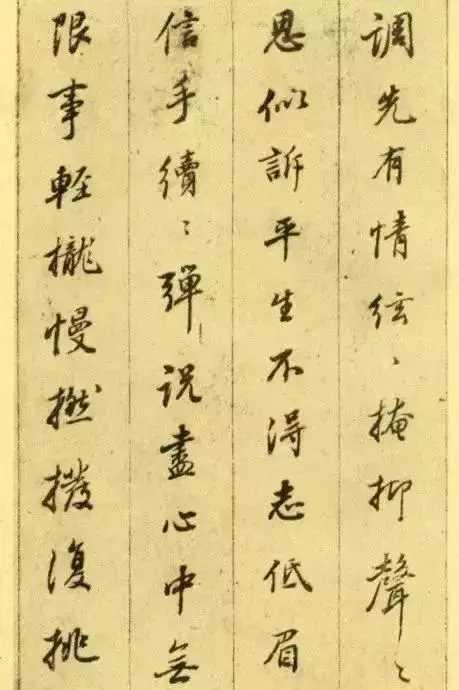 调先有情弦〻掩抑聲〻
思似訴平生不得志低眉
信手續〻彈说盡心中無
限事輕攏慢撚撥復挑